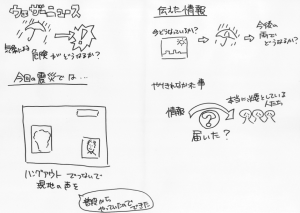 ウェザーニュース
危険がどうなるか?
今回の震災では…
ハングアウトでつないで
現地の声を
普段から
やっていたのでできた
伝えた情報
今どうなっているか?
今後の
雨で
どうなるか?
やりきれなかった事
情報
?
本当に必要としている
人たち
届いた?